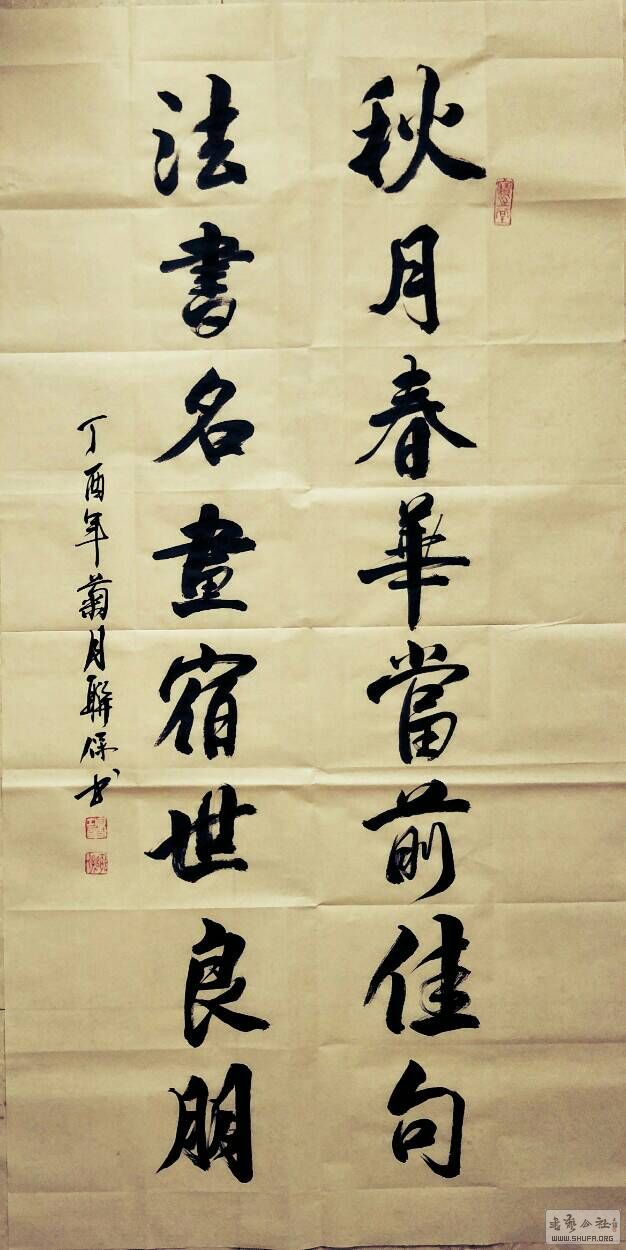 秋月春華當前佳句
法書名畫宿世良朋
丁酉年菊月聯保书
WWW.SHUFA.ORG